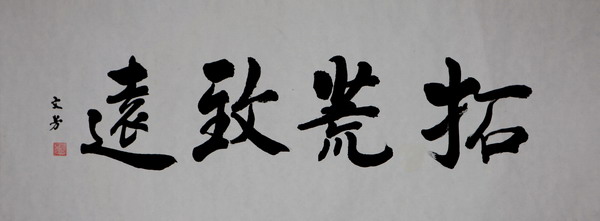 拓荒致遠
文芳